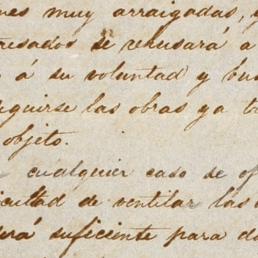 nes muy arraigadas, y
resados se rehusará a
o á su voluntad y bue
eguirse las obras ya
objeto.
cualquier caso de
icultad de ventilar las
rá suficiente para